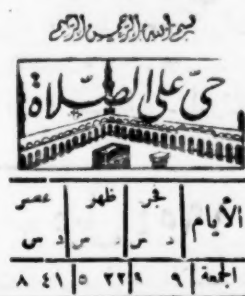 بسم الله الرحمن الرحيم
حيّ على الصّلاة
الأيام فجر ظهر عصر
د س د س د س
الجمعة ٩ ٩ ٢٢ ٥ ٤١ ٨